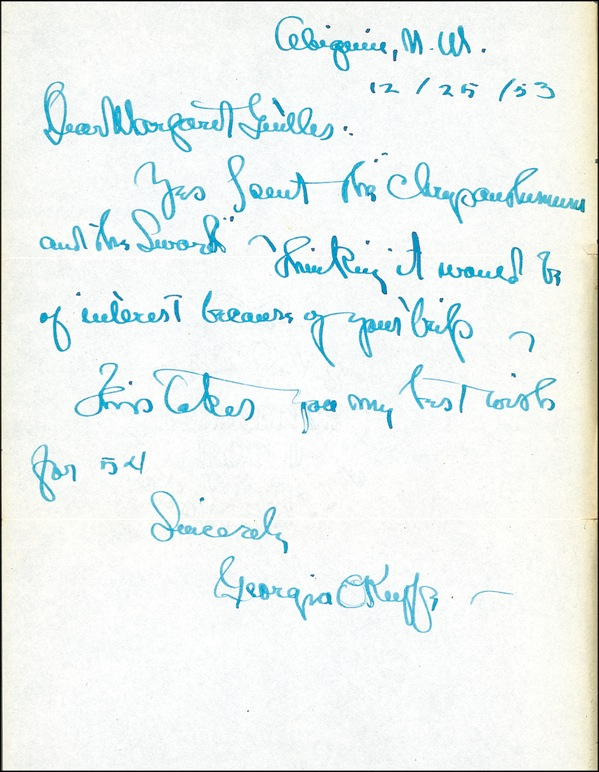 Abiquiu, N. M.
12 / 25 / 53
Dear Margaret
Yes I sent the "Chrysanthemum
and the Sword" thinking it would be
of interest because of your trip
This takes you my best wish
for 54
Sincerely
Georgia O'Keeffe —